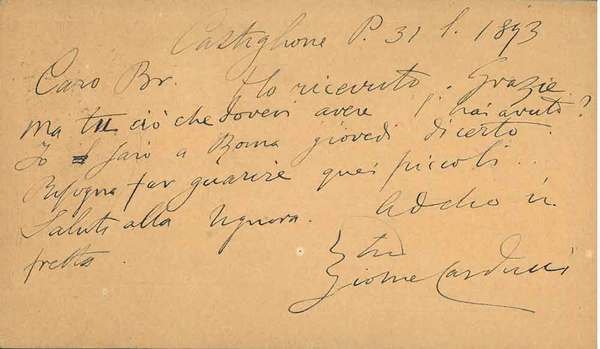 Castiglione P. 31 1893
Caro Br. Ho ricevuto. Grazie.
Ma tu ciò che dovevi avere l'hai avuto?
Io sarò a Roma giovedì di certo.
Bisogna far guarire quei piccoli.
Saluti alla signora. Addio in
fretta.
tuo
Giosue Carducci